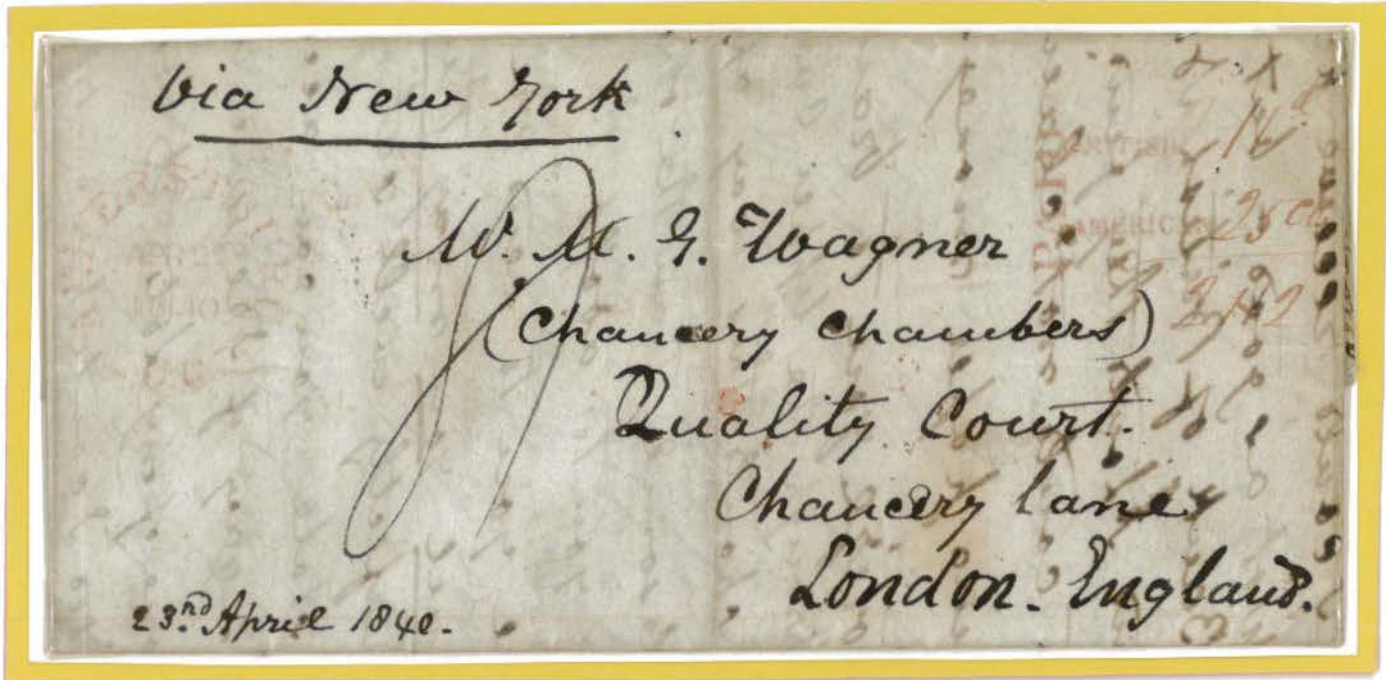 Via New York
W. M. G. Wagner
(Chancery Chambers)
Quality Court.
Chancery lane
London. England.
23.rd April 1840.
PAID
BRITISH
AMERICAN 25 cts